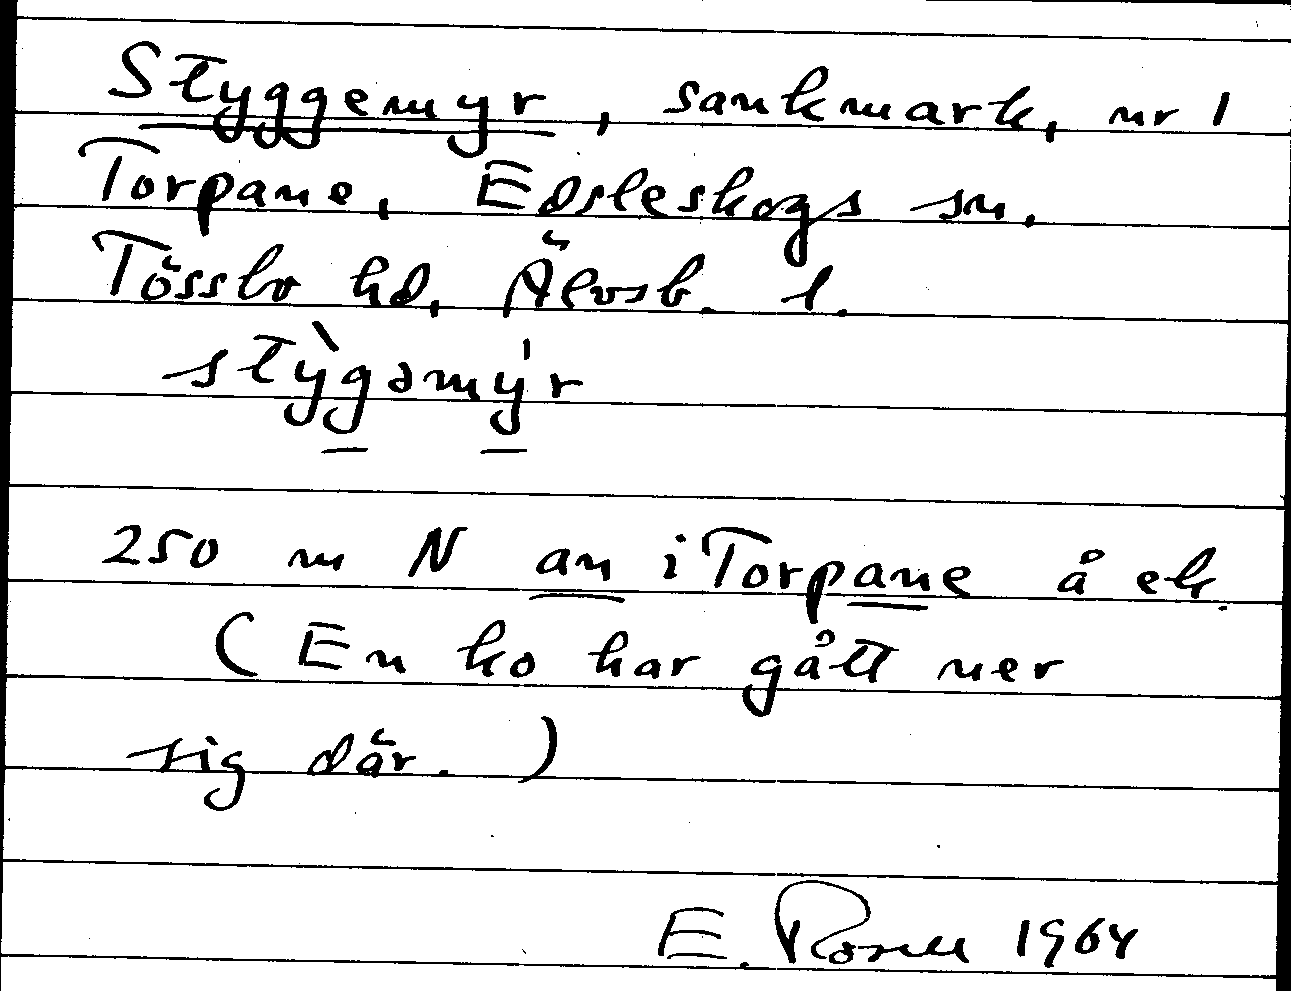 Styggemyr, sankmark, nr 1
Torpane, Edsleskogs sn.
Tössbo hd, Älvsb. l.
stỳgəmy̍r
250 m N an i Torpane å ek.
(En ko har gått ner
sig där.)
E. 1964